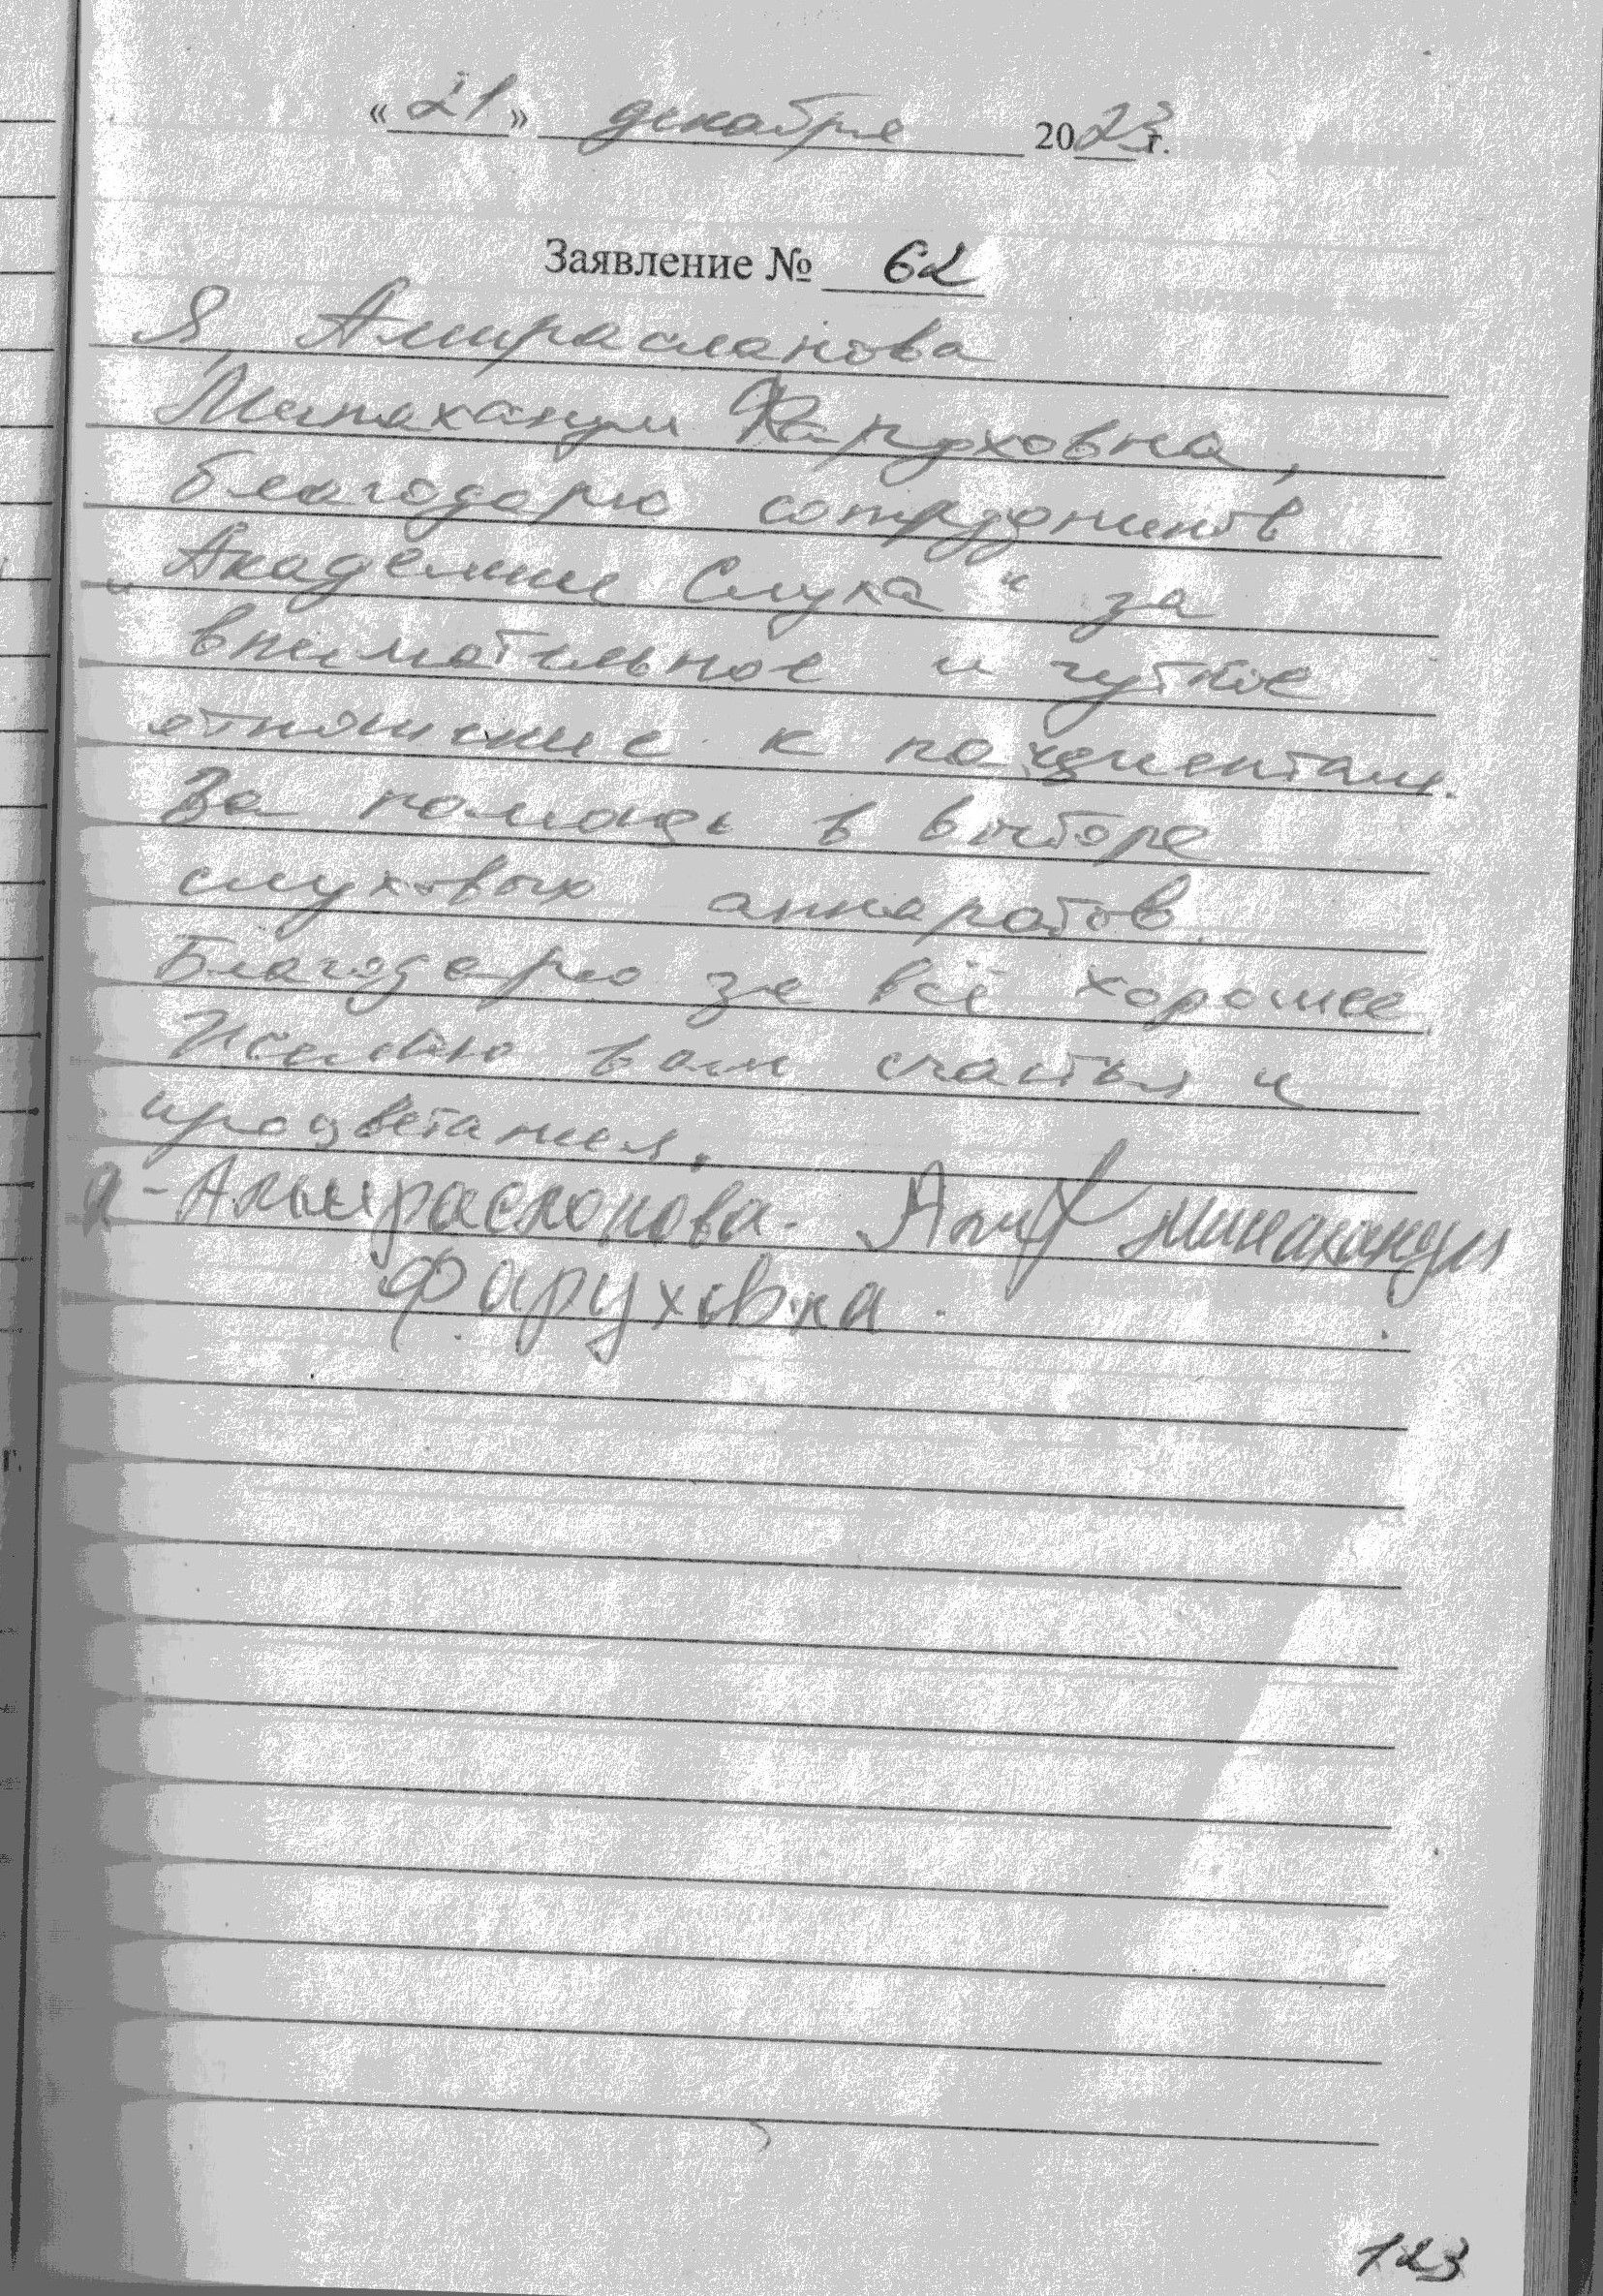 « 21 » декабря 2023 г.
Заявление № 62
Я, Амирасланова
Минаханум Фаруховна,
благодарю сотрудников
"Академии Слуха" за
внимательное и чуткое
отношение к пациентам.
За помощь в выборе
слуховых аппаратов.
Благодарю за всё хорошее.
Желаю вам счастья и
процветания.
Я - Амирасланова. Минаханум
Фаруховна.
123